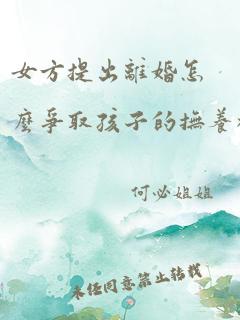 女方提出離婚怎
麼爭取孩子的撫養
何必姐姐
未任同意禁止转载